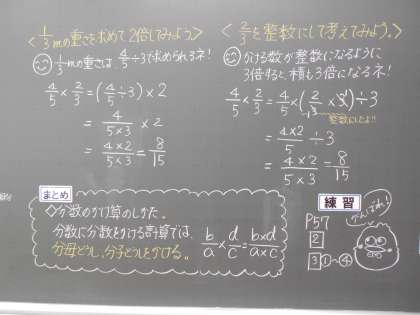 <1/3mの重さを求めて2倍してみよう>
1/3mの重さは、4/5÷3で求められるネ!
4/5×2/3=(4/5÷3)×2
=4/5×3×2
=4×2/5×3=8/15
<2/3を整数にして考えてみよう。>
かける数が整数になるように
3倍すると、積も3倍になるネ!
4/5×2/3=4/5×(2/3×3)÷3
整数にしたよ!!
=4×2/5÷3
=4×2/5×3=8/15
まとめ
◇分数のかけ算のしかた。
分数に分数をかける計算では、
分母どうし、分子どうしをかける。
b/a×d/c=b×d/a×c
練習
P57
2
3①~④
がんばれ!